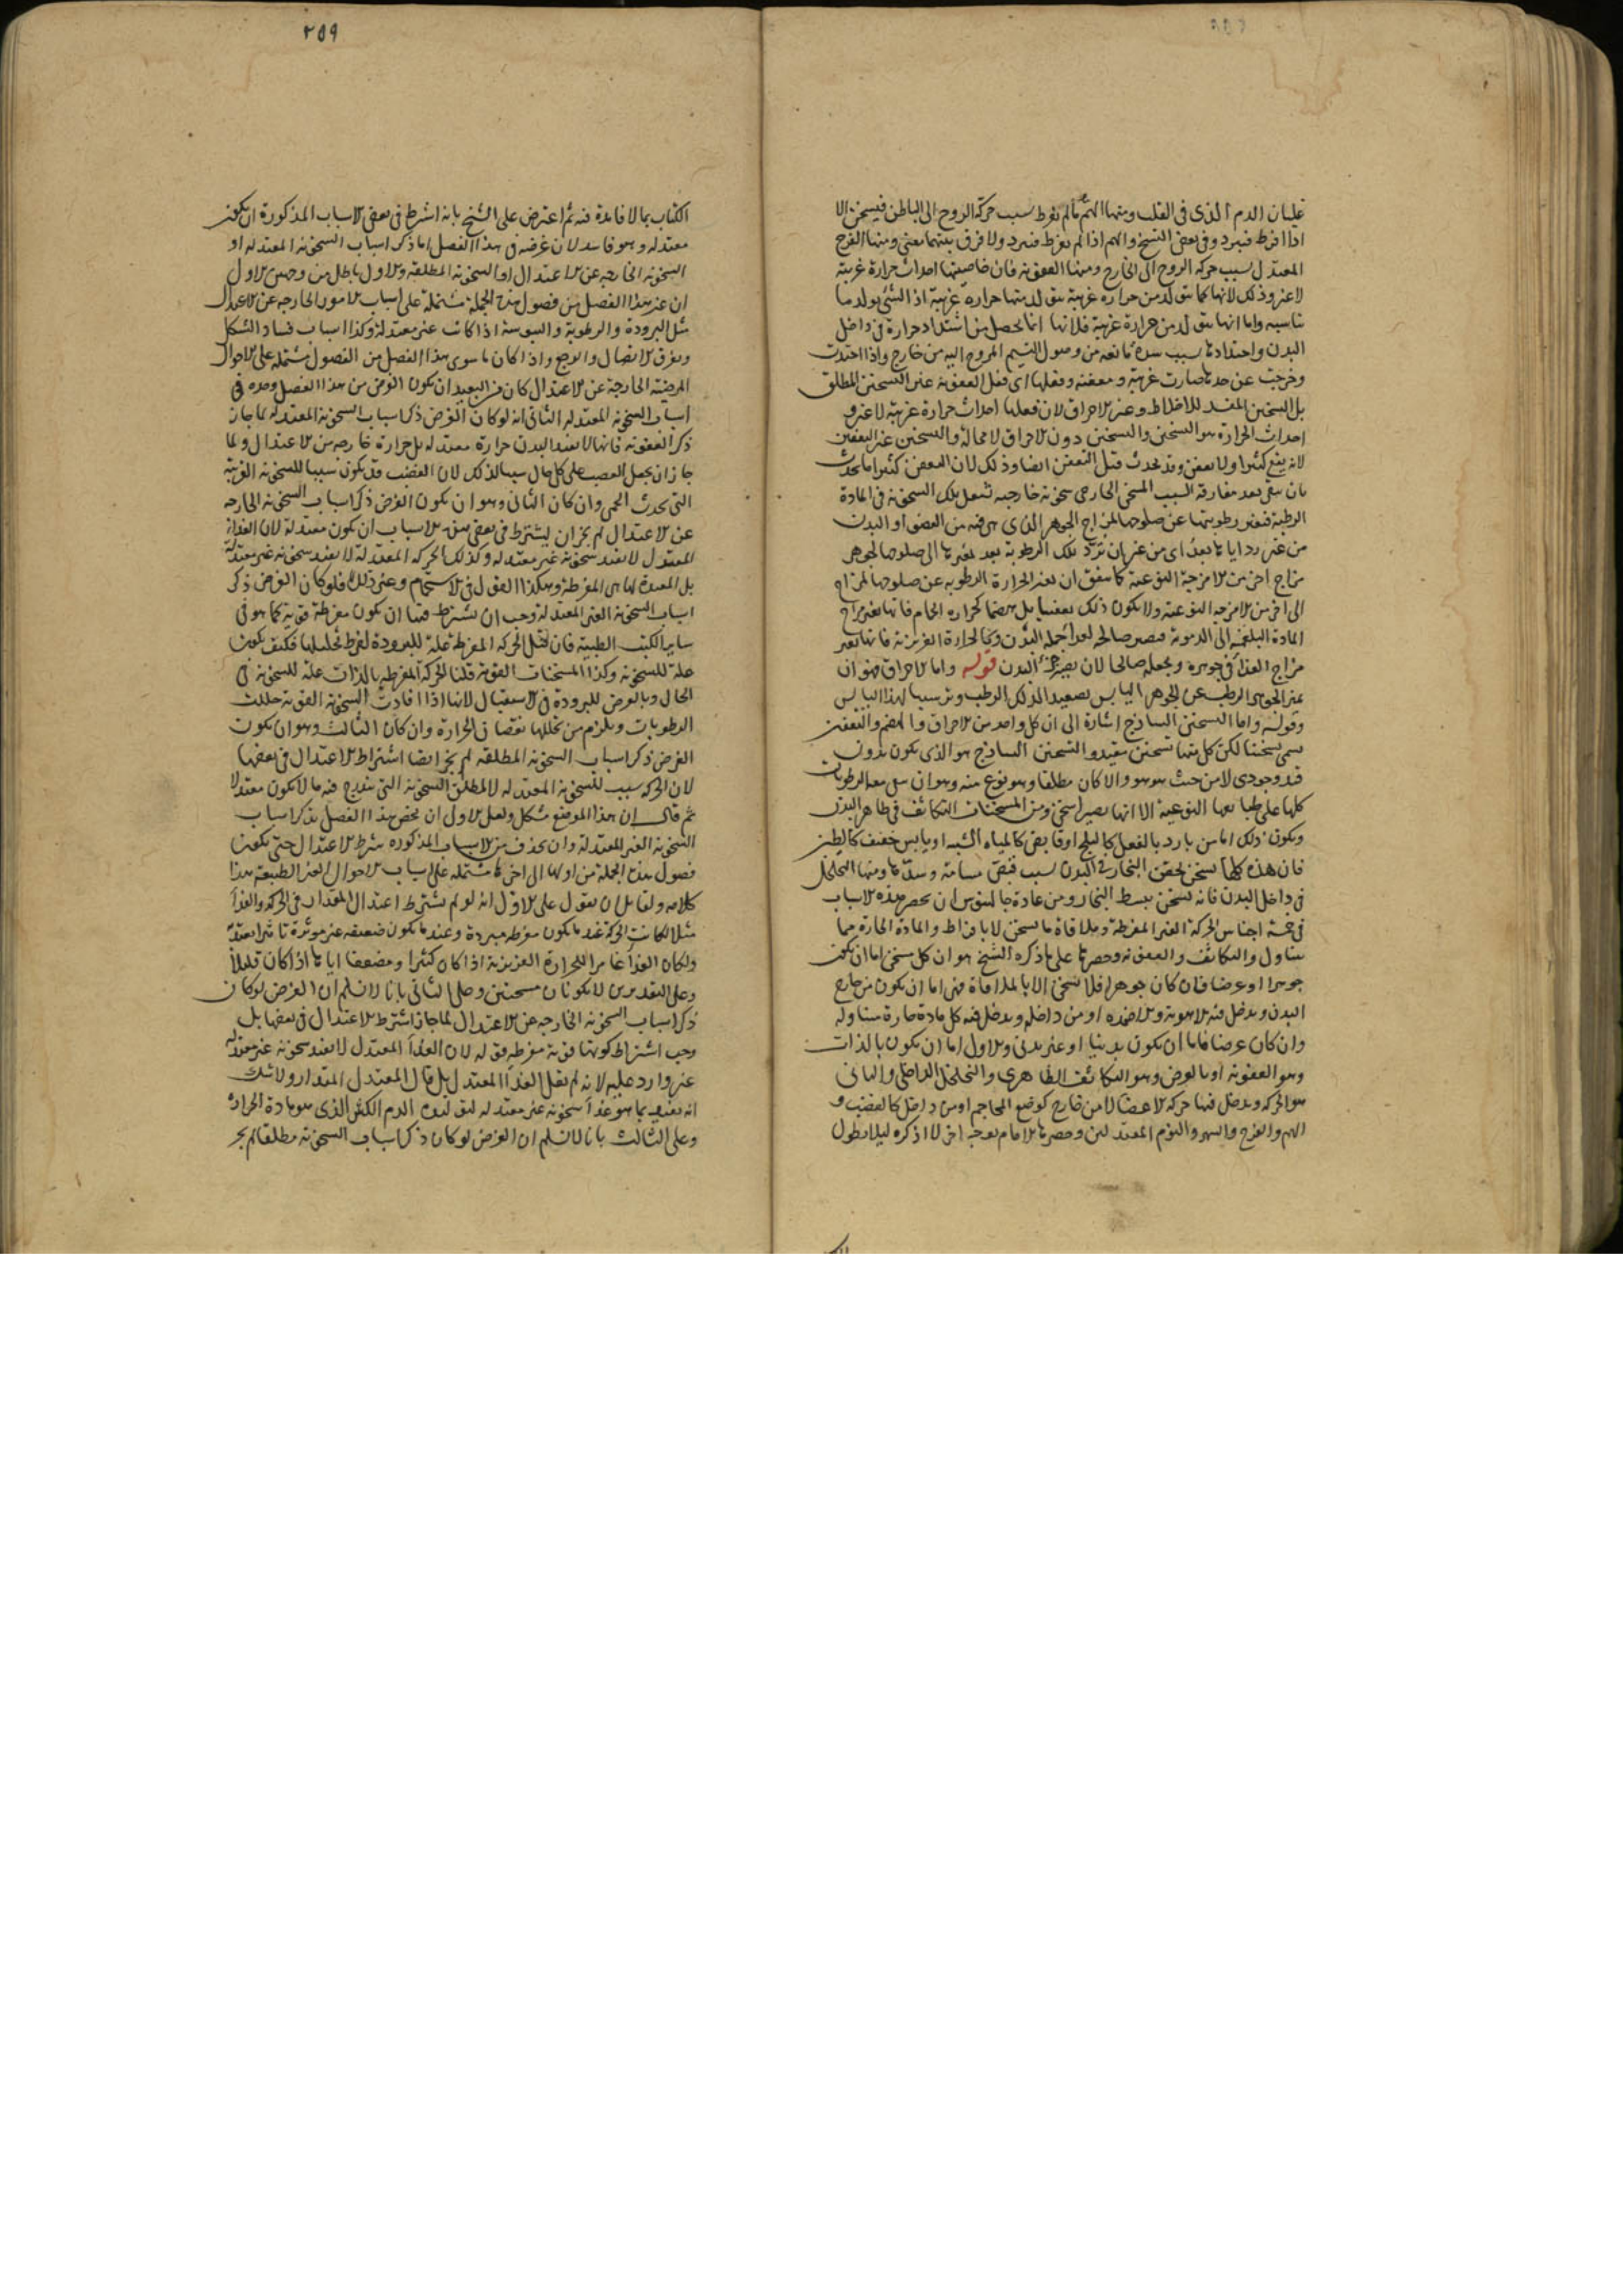 غليان الدم الذى فى القلب ومنها الهم ما لم يفرط بسبب حركة الروح الى الباطن فيسخن الا
اذا افرط فيبرد وفى بعض النسخ والهم اذا لم يفرط فيبرد ولا فرق بينهما معنى ومنها الفرح
المعتدل بسبب حركة الروح الى الخارج ومنها العفونة فان خاصيتها احداث حرارة غريبة
لا غير وذلك لانها كما تتولد من حرارة غريبة يتولد منها حرارة غريبة اذ الشئ يولد ما
يناسبه واما انها تتولد من حرارة غريبة فلانها انما يحصل من اشتداد حرارة فى داخل
البدن واحتدادها بسبب سدة مانعة من وصول النسيم المروح اليه من خارج واذا احتدت
وخرجت عن حدها صارت غريبة ومعفنة وفعلها اى فعل العفونة غير التسخين المطلق
بل التسخين المفسد للاخلاط وغير الاحراق لان فعلها احداث حرارة غريبة لا غير و
احداث الحرارة هو التسخين والتسخين دون الاحراق لا محالة والتسخين غير التعفين
لانه يقع كثيرا ولا يعفن وقد يحدث قبل التعفن ايضا وذلك لان العفن كثيرا ما يحدث
بان يبقى بعد مفارقة السبب المسخن الخارجى سخونة خارجية تشعل بتلك السخونة فى المادة
الرطبة فتغير رطوبتها عن صلوحها لمزاج الجوهر الذى هى فيه من العضو او البدن
من غير رد اياها بعد اى من غير ان ترد تلك الرطوبة بعد تغيرها الى صلوحها لجوهر
مزاج اخر من الامزجة النوعية كما يتفق ان تغير الحرارة الرطوبة عن صلوحها لمزاج
الى اخر من الامزجة النوعية ولا يكون ذلك تعفينا بل هضما كحرارة الحمام فانها تغير مزاج
المادة البلغمية الى الدموية فتصير صالحة لغذاء جملة البدن وكالحرارة الغريزية فانها تغير
مزاج الغذاء فى جوهره ويجعله صالحا لان يصير جزء البدن قوله واما الاحراق فهو ان
يميز الجوهر الرطب عن الجوهر اليابس تصعيدا لذلك الرطب وترسيبا لهذا اليابس
وقوله واما التسخين الساذج اشارة الى ان كل واحد من الاحراق والهضم والتعفين
يسمى تسخينا لكن كل منها تسخين مقيد والتسخين الساذج هو الذى يكون بدون
قيد وجودى لا من حيث هو هو والا كان مطلقا وهو نوع منه وهو ان يبقى معه الرطوبات
كلها على طباعها النوعية الا انها يصير اسخن ومن المسخنات التكاثف فى ظاهر البدن
ويكون ذلك اما من بارد بالفعل كالثلج او قابض كالمياه الشبية او يابس مجفف كالطين
فان هذه كلها تسخن بحقن البخار فى البدن بسبب قبض مسامه وسدها ومنها التخلخل
فى داخل البدن فانه يسخن ببسط البخار ومن عادة جالينوس ان يحصر هذه الاسباب
فى خمسة اجناس الحركة الغير المفرطة وملاقاة ما يسخن لا بافراط والمادة الحارة مما
يتناول والتكاثف والعفونة وحصرها على ما ذكره الشيخ هو ان كل مسخن اما ان يكون
جوهرا او عرضا فان كان جوهرا فلا يسخن الا بالملاقاة فهى اما ان يكون من خارج
البدن ويدخل فيه الاهوية والاضمدة او من داخله ويدخل فيه كل مادة حارة متناولة
وان كان عرضا فاما ان يكون بدنيا او غير بدنى والاول اما ان يكون بالذات
وهو العفونة او بالعرض وهو التكاثف الظاهرى والتخلخل الداخلى والثانى
هو الحركة ويدخل فيها حركة الاعضاء لا من خارج كوضع المحاجم او من داخل كالغضب و
الهم والفرح والسهر والنوم المعتدلين وحصرها الامام بوجه اخر لا اذكره ليلا يطول
٢٥٩
الكتاب بما لا فائدة فيه ثم اعترض على الشيخ بانه اشرط فى بعض الاسباب المذكورة ان يكون
معتدلة وهو فاسد لان غرضه فى هذا الفصل اما ذكر اسباب السخونة المعتدلة او
السخونة الخارجة عن الاعتدال او السخونة المطلقة والاول باطل من وجهين الاول
ان غير هذا الفصل من فصول هذه الجملة مشتملة على اسباب الامور الخارجة عن الاعتدال
مثل البرودة والرطوبة واليبوسة اذا كانت غير معتدلة وكذا اسباب فساد الشكل
وتفرق الاتصال والوجع واذا كان ما سوى هذا الفصل من الفصول مشتملة على الاحوال
المرضية الخارجة عن الاعتدال كان من البعيد ان يكون الغرض من هذا الفصل وحده فى
اسباب السخونة المعتدلة الثانى انه لو كان الغرض ذكر اسباب السخونة المعتدلة لما جاز
ذكر العفونة فانها لا تفيد البدن حرارة معتدلة بل حرارة خارجة من الاعتدال ولما
جاز ان يجعل الغضب على كل حال سببا لذلك لان الغضب قد يكون سببا للسخونة الغريبة
التى تحدث الحمى وان كان الثانى وهو ان يكون الغرض ذكر اسباب السخونة الخارجة
عن الاعتدال لم يجز ان يشترط فى بعض هذه الاسباب ان يكون معتدلة لان الغذاء
المعتدل لا يفيد سخونة غير معتدلة وكذلك الحركة المعتدلة لا تفيد سخونة غير معتدلة
بل المفيدة لها هى المفرطة وهكذا القول فى الاستحمام وغير ذلك فلو كان الغرض ذكر
اسباب السخونة الغير المعتدلة وجب ان يشترط فيها ان يكون مفرطة قوية كما هو فى
ساير الكتب الطبية فان قيل الحركة المفرطة علة للبرودة لفرط تحليلها فكيف يكون
علة للسخونة وكذا المسخنات القوية قلنا الحركة المفرطة بالذات علة للسخونة فى
الحال وبالعرض للبرودة فى الاستقبال لانها اذا افادت السخونة القوية حللت
الرطوبات ويلزم من تحللها نقصان الحرارة وان كان الثالث وهو ان يكون
الغرض ذكر اسباب السخونة المطلقة لم يجز ايضا اشتراط الاعتدال فى بعضها
لان الحركة سبب للسخونة المعتدلة لا لمطلق السخونة التى يندرج فيه ما لا يكون معتدلا
ثم قال ان هذا الموضع مشكل ولعل الاولى ان يخص هذا الفصل بذكر اسباب
السخونة الغير المعتدلة وان يحذف من الاسباب المذكورة شرط الاعتدال حتى يكون
فصول هذه الجملة من اولها الى اخرها مشتملة على اسباب الاحوال الغير الطبيعية هذا
كلامه ولقايل ان يقول على الاول انه لو لم يشترط اعتدال المقدار فى الحركة والغذاء
مثلا لكانت الحركة عند ما يكون مفرطة مبردة وعند ما يكون ضعيفة غير موثرة تاثيرا يعتد
ولكان الغذاء غامرا للحرارة الغريزية اذا كان كثيرا ومضعفا اياها اذا كان قليلا
وعلى التقديرين لا يكونان مسخنين وعلى الثانى بانا لا نسلم ان الغرض لو كان
ذكر اسباب السخونة الخارجة عن الاعتدال لما جاز اشترط الاعتدال فى بعضها بل
وجب اشتراط كونها قوية مفرطة قوله لان الغذاء المعتدل لا يفيد سخونة غير معتدلة
غير وارد عليه لانه لم يقل الغذاء المعتدل بل قال المعتدل المقدار ولا شك
انه يفيد بما هو غذاء سخونة غير معتدلة لتوليده الدم الكثير الذى هو مادة الحرارة
وعلى الثالث بانا لا نسلم ان الغرض لو كان ذكر اسباب السخونة مطلقا لم يجز